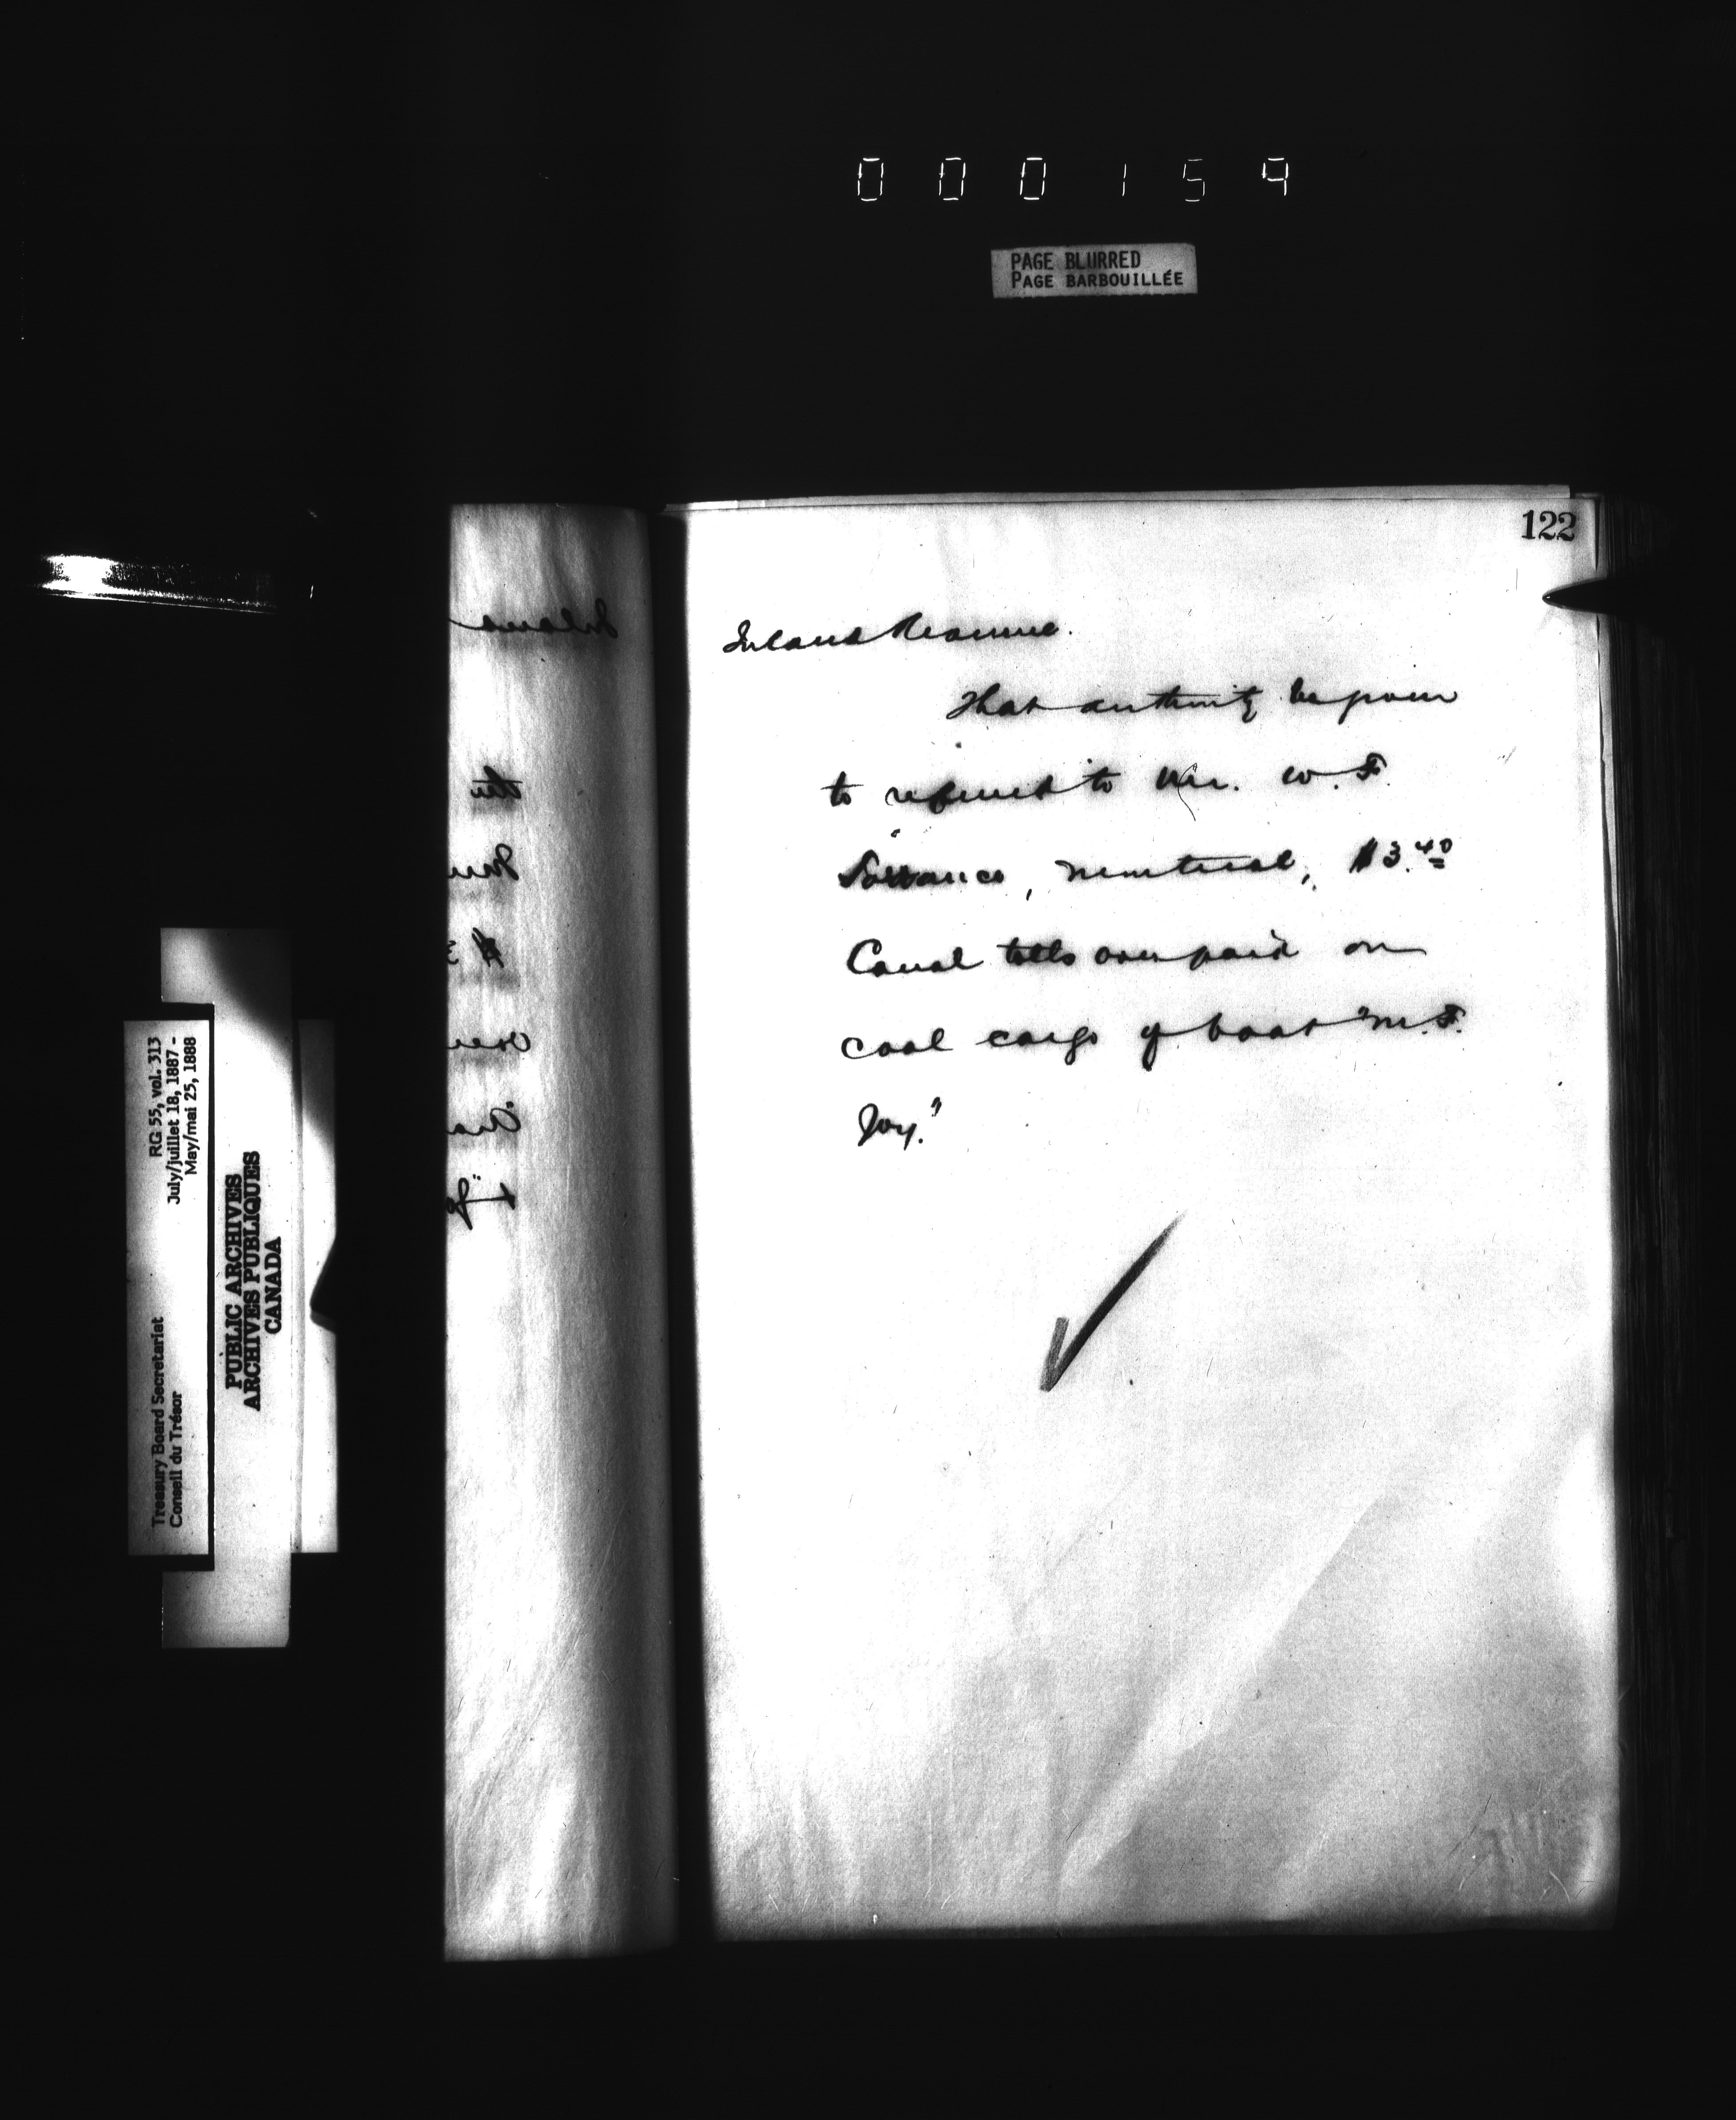 000159
PAGE BLURRED
PAGE BARBOUILLÉE
122
Inland Revenue.
That authority be given
to refund to Mr. W. F.
Torrance, Montreal, $3.40
Canal tolls overpaid on
coal cargo of boat "M. F.
Joy."
Inland
the
$ 3
over
RG 55, vol. 313
July/juillet 18, 1887 -
May/mai 25, 1888
Treasury Board Secretariat
Conseil du Trésor
PUBLIC ARCHIVES
ARCHIVES PUBLIQUES
CANADA